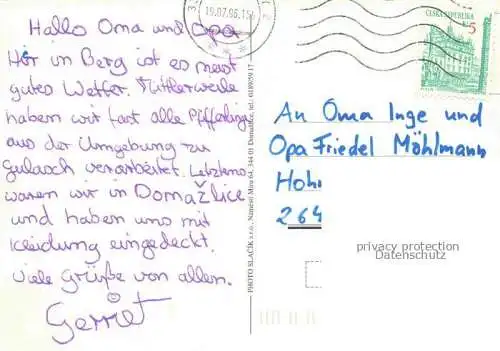 Hallo Oma und Opa
Hir in Berg ist es meist
gutes Wetter. Mittlerweile
haben wir fast alle Pfifferlinge
aus der Umgebung zu
Gulasch verarbeitet. Letztens
waren wir in Domažlice
und haben uns mit
Kleidung eingedeckt.
Viele Grüße von allen.
Gerriet
19.07.96.15
ČESKÁ REPUBLIKA
5
PHOTO SLAČÍK s.r.o., Náměstí Míru 64, 344 01 Domažlice, tel.
An Oma Inge und
Opa Friedel Möhlmann
264
privacy protection
Datenschutz